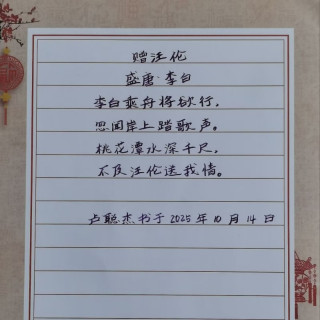 赠汪伦
盛唐·李白
李白乘舟将欲行,
忽闻岸上踏歌声。
桃花潭水深千尺,
不及汪伦送我情。
卢聪杰书于2025年10月14日